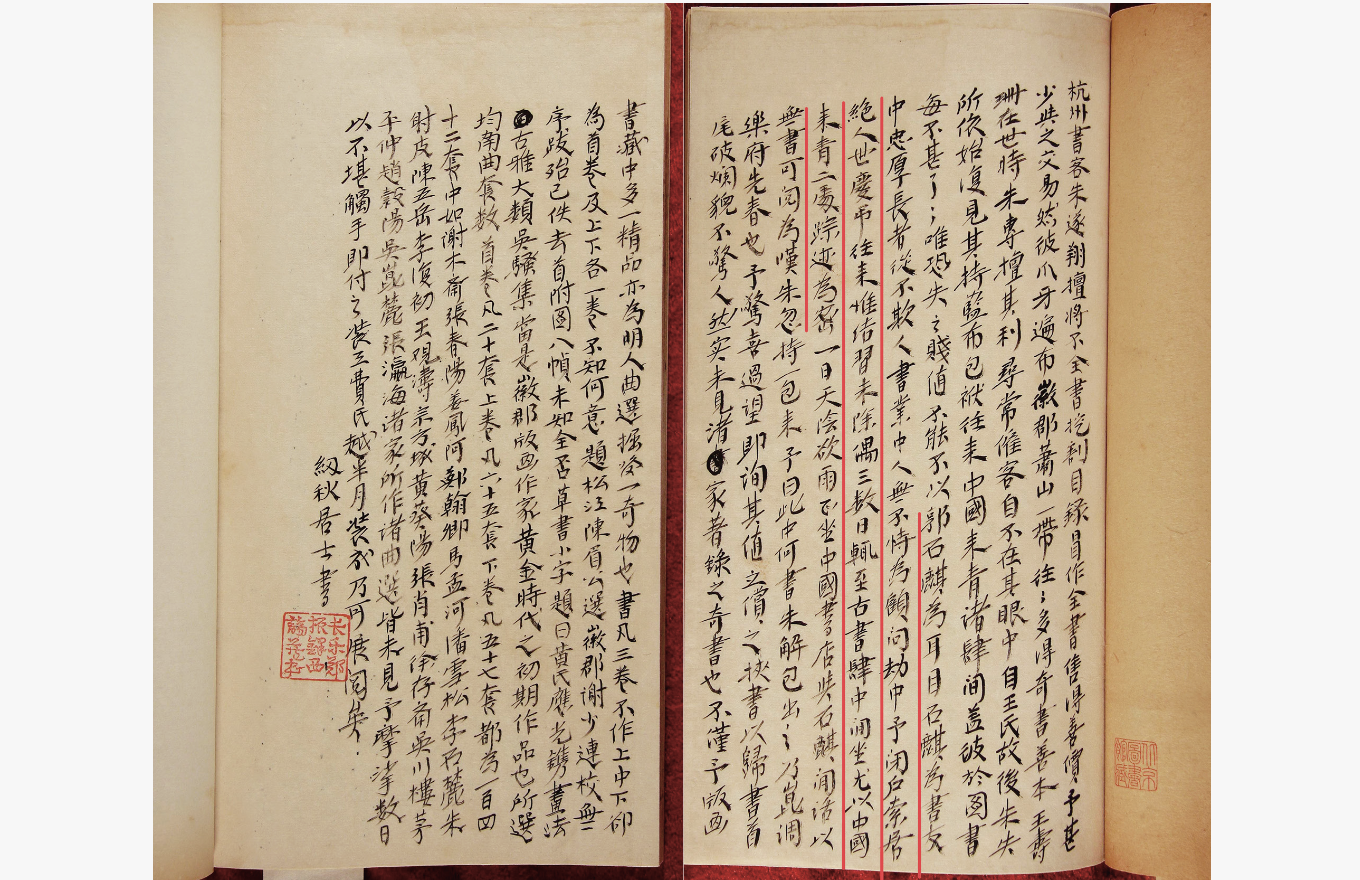 杭州書客朱遂翔擅將不全書挖剜目錄冒作全書售得善價予甚
少與之交易然彼爪牙遍布徽郡蕭山一帶往〻多得奇書善本王壽
珊在世時朱專擅其利尋常估客自不在其眼中自王氏故後朱失
所依始復見其持藍布包袱往來中國來青諸肆間蓋彼於圖書
每不甚了〻唯恐失之賤值不能不以郭石麒為耳目石麒為書友
中忠厚長者從不欺人書業中人無不恃為顧問劫中予閉户索居
絕人世慶弔往來惟結習未除隔三數日輒至古書肆中閒坐尤以中國
來青二處踪迹為密一日天陰欲雨正坐中國書店與石麒閒話以
無書可閱為嘆朱忽持一包來予曰此中何書朱解包出〻乃崑調
樂府先春也予驚喜過望即詢其值立償之挾書以歸書首
尾破爛貌不驚人然實未見諸家著錄之奇書也不僅予版画
書藏中多一精品亦為明人曲選掘發一奇物也書凡三卷不作上中下卻
為首卷及上下各一卷不知何意題松江陳眉公選徽郡謝少連校無
序跋殆已佚去首附圖八幀未知全否草書小字題曰黃氏應光鐫畫法
古雅大類吳騷集當是徽郡版画作家黃金時代之初期作品也所選
均南曲套数首卷凡二十套上卷凡六十五套下卷凡五十七套都為一百四
十二套中如謝木齋張春陽姜鳳阿鄭翰卿馬孟河潘雪松李石麓朱
射皮陳五岳李復初王覌濤宗方城黃葵陽張肖甫徐存齋吳川樓茅
平仲趙瀔陽吳崑麓張瀛海諸家所作諸曲選皆未見予摩挲数日
以不堪觸手即付之裝工費氏越半月裝成乃可展閱矣
紉秋居士書
长乐郑
振鐸西
諦藏書
北京
圖書
館藏